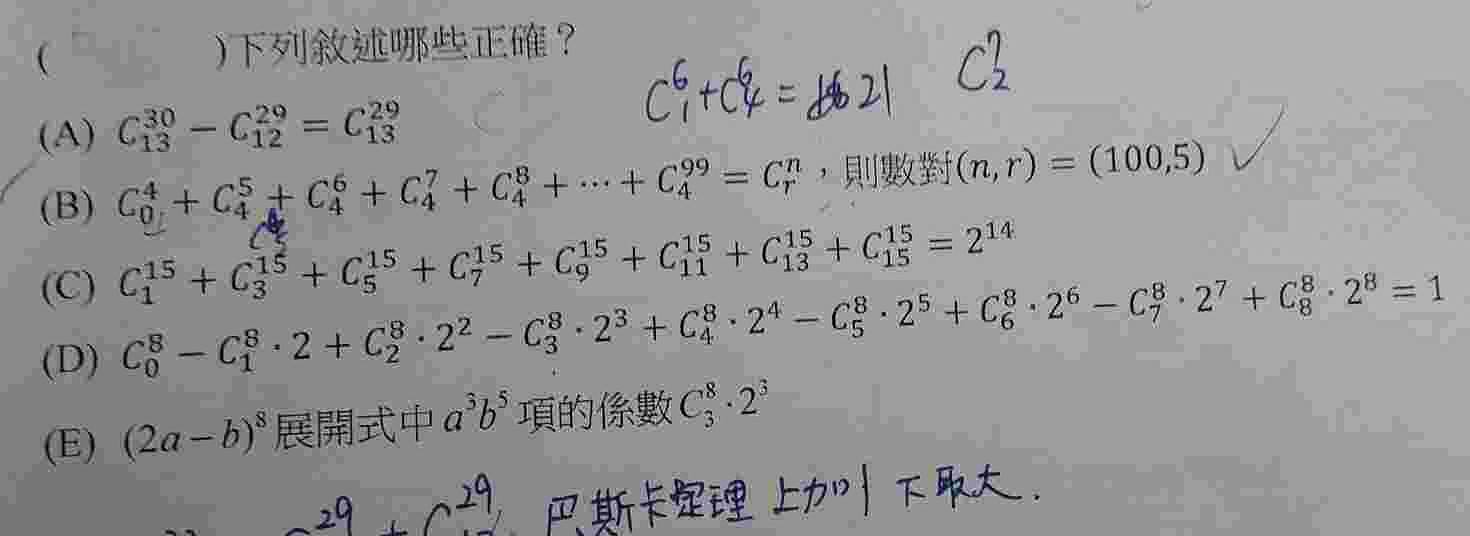 (          )下列敘述哪些正確？
C₁⁶+C₄⁶ = 21   C₂⁷
(A) C₁₃³⁰ − C₁₂²⁹ = C₁₃²⁹
(B) C₀⁴ + C₄⁵ + C₄⁶ + C₄⁷ + C₄⁸ + ⋯ + C₄⁹⁹ = Cᵣⁿ，則數對(n, r) = (100,5) ✓
(C) C₁¹⁵ + C₃¹⁵ + C₅¹⁵ + C₇¹⁵ + C₉¹⁵ + C₁₁¹⁵ + C₁₃¹⁵ + C₁₅¹⁵ = 2¹⁴
(D) C₀⁸ − C₁⁸ · 2 + C₂⁸ · 2² − C₃⁸ · 2³ + C₄⁸ · 2⁴ − C₅⁸ · 2⁵ + C₆⁸ · 2⁶ − C₇⁸ · 2⁷ + C₈⁸ · 2⁸ = 1
(E) (2a − b)⁸展開式中a³b⁵項的係數C₃⁸·2³
巴斯卡定理 上加1 下取大.